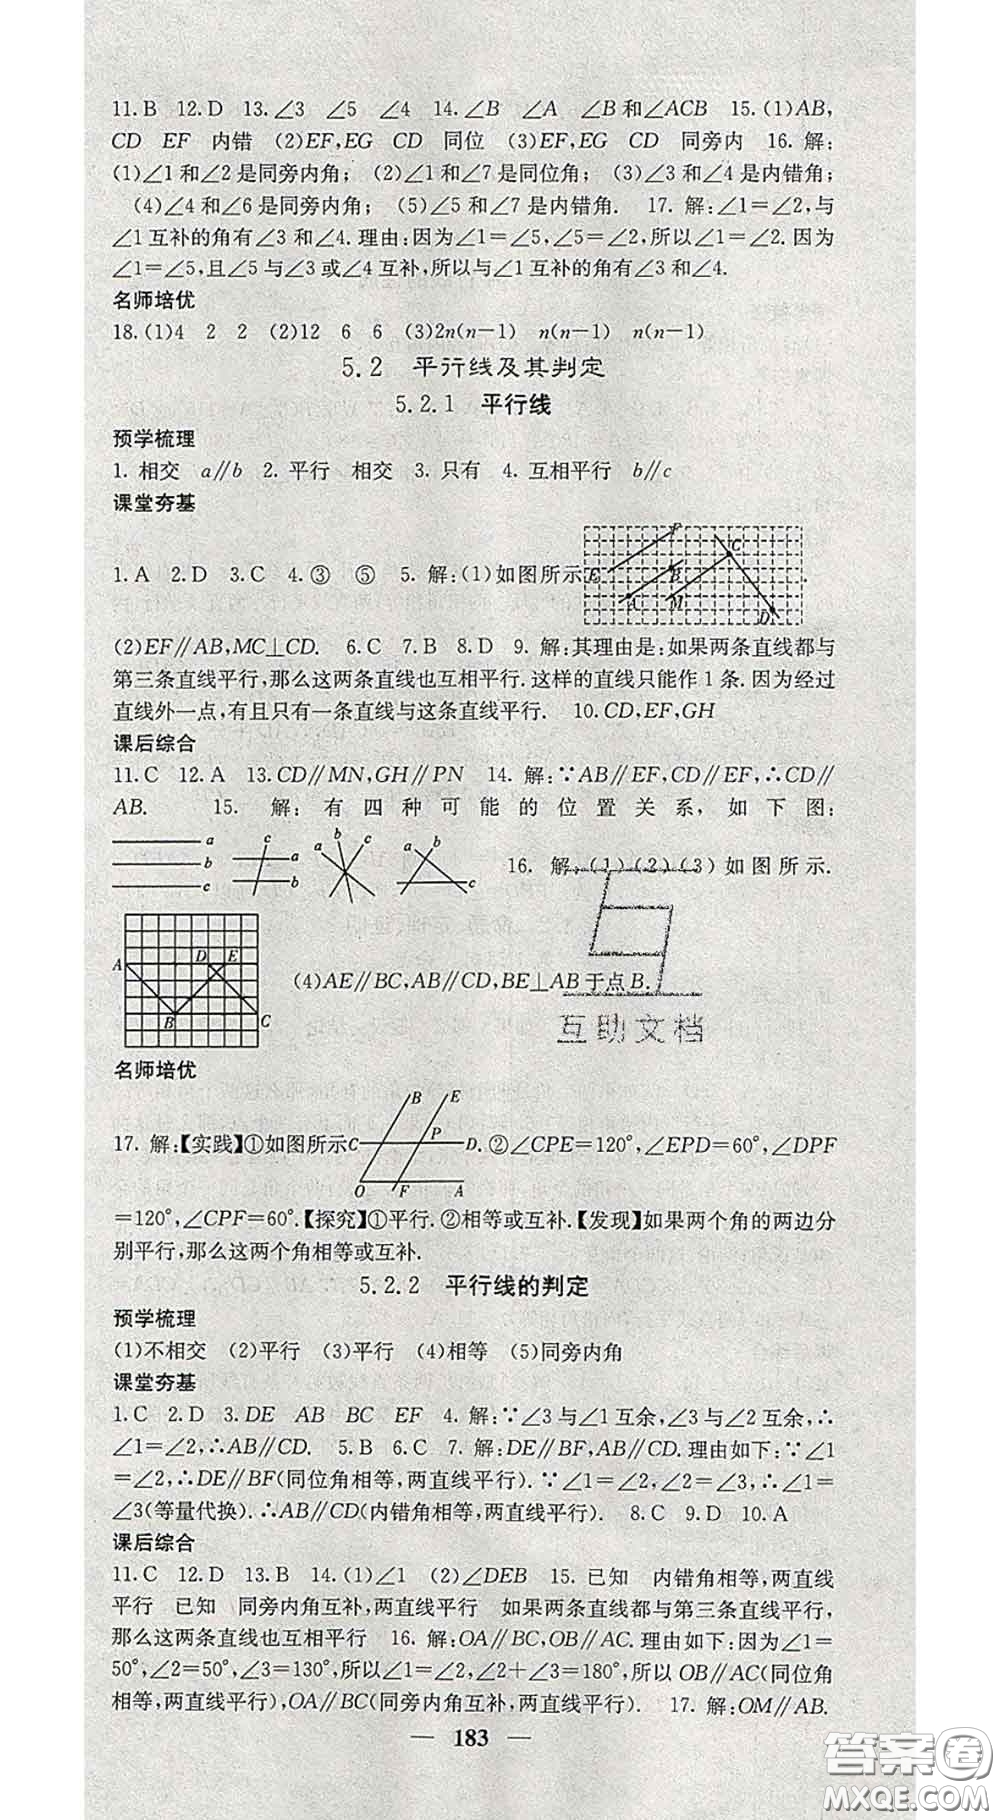 11.B 12.D 13.∠3 ∠5 ∠4 14.∠B ∠A ∠B和∠ACB 15.(1)AB,
CD EF 内错 (2)EF,EG CD 同位 (3)EF,EG CD 同旁内 16.解:
(1)∠1和∠2是同旁内角; (2)∠1和∠7是同位角; (3)∠3和∠4是内错角;
(4)∠4和∠6是同旁内角; (5)∠5和∠7是内错角. 17.解:∠1=∠2,与
∠1互补的角有∠3和∠4.理由:因为∠1=∠5,∠5=∠2,所以∠1=∠2.因为
∠1=∠5,且∠5与∠3或∠4互补,所以与∠1互补的角有∠3和∠4.
名师培优
18.(1)4 2 2 (2)12 6 6 (3)2n(n-1) n(n-1) n(n-1)
5.2 平行线及其判定
5.2.1 平行线
预学梳理
1.相交 a∥b 2.平行 相交 3.只有 4.互相平行 b∥c
课堂夯基
1.A 2.D 3.C 4.③ ⑤ 5.解:(1)如图所示 E F A B M C D .
(2)EF∥AB,MC⊥CD. 6.C 7.B 8.D 9.解:其理由是:如果两条直线都与
第三条直线平行,那么这两条直线也互相平行.这样的直线只能作1条.因为经过
直线外一点,有且只有一条直线与这条直线平行. 10.CD,EF,GH
课后综合
11.C 12.A 13.CD∥MN,GH∥PN 14.解:∵AB∥EF,CD∥EF,∴CD∥
AB. 15.解:有四种可能的位置关系,如下图:
a b c c a b a b c a b c 16.解:(1)(2)(3)如图所示.
A D E B C (4)AE∥BC,AB∥CD,BE⊥AB于点B.
互助文档
名师培优
17.解:【实践】①如图所示 C B E P D O F A .②∠CPE=120°,∠EPD=60°,∠DPF
=120°,∠CPF=60°.【探究】①平行.②相等或互补.【发现】如果两个角的两边分
别平行,那么这两个角相等或互补.
5.2.2 平行线的判定
预学梳理
(1)不相交 (2)平行 (3)平行 (4)相等 (5)同旁内角
课堂夯基
1.C 2.D 3.DE AB BC EF 4.解:∵∠3与∠1互余,∠3与∠2互余,∴
∠1=∠2,∴AB∥CD. 5.B 6.C 7.解:DE∥BF,AB∥CD.理由如下:∵∠1
=∠2,∴DE∥BF(同位角相等,两直线平行).∵∠1=∠2,∠2=∠3,∴∠1=
∠3(等量代换).∴AB∥CD(内错角相等,两直线平行). 8.C 9.D 10.A
课后综合
11.C 12.D 13.B 14.(1)∠1 (2)∠DEB 15.已知 内错角相等,两直线
平行 已知 同旁内角互补,两直线平行 如果两条直线都与第三条直线平行,
那么这两条直线也互相平行 16.解:OA∥BC,OB∥AC.理由如下:因为∠1=
50°,∠2=50°,∠3=130°,所以∠1=∠2,∠2+∠3=180°,所以OB∥AC(同位角
相等,两直线平行),OA∥BC(同旁内角互补,两直线平行). 17.解:OM∥AB.
— 183 —
答案圈
MXQE.COM